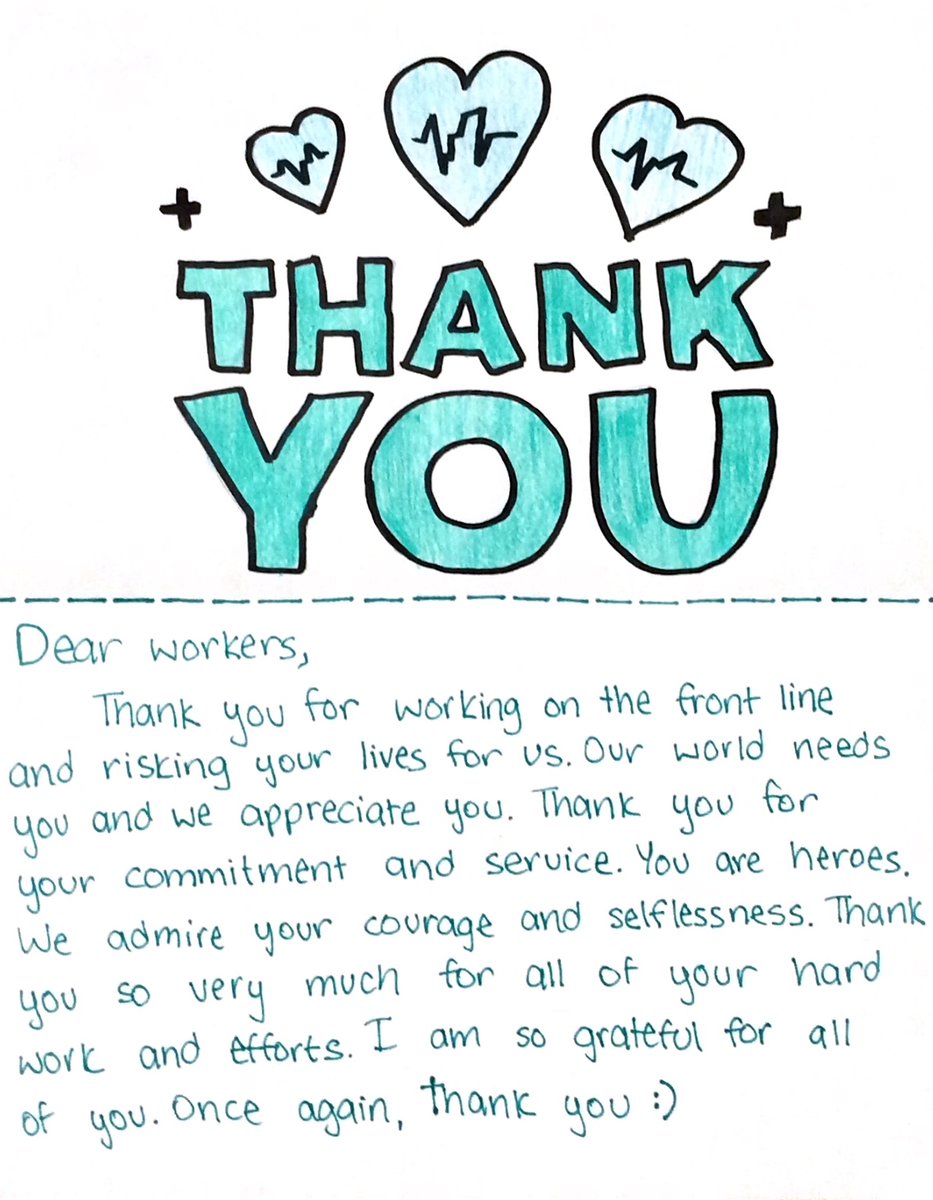 THANK
YOU
Dear workers,
Thank you for working on the front line
and risking your lives for us. Our world needs
you and we appreciate you. Thank you for
your commitment and service. You are heroes.
We admire your courage and selflessness. Thank
you so very much for all of your hard
work and efforts. I am so grateful for all
of you. Once again, thank you :)